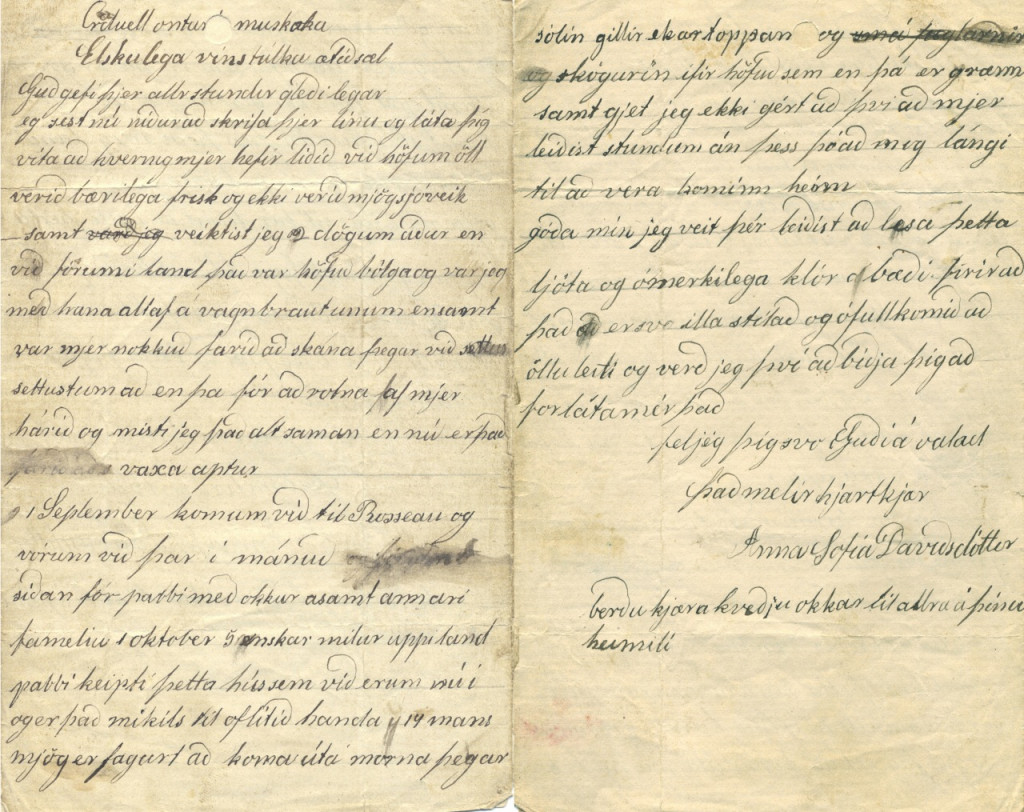 ontari muskoka
Elskulega vinstulka ætidsæl
Gud gefi þjer allr stundir gledilegar
eg sest nú nidur ad skrifa þjer línu og láta þig
vita ad hvernig mjer hefir lidid vid höfum öll
verid bærilega frisk og ekki verid mjög sjóveik
samt vard jeg veiktist jeg 2 dögum ádur en
vid fórum í land þad var höfud bólga og var jeg
med hana altaf á vagnbrautunum en samt
var mjer nokkud farid ad skána þegar vid settu
settustum ad en þa fór ad rotna af mjer
hárid og misti jeg þad alt saman en nú er þad
farid ad vaxa aptur
21 September komum vid til Rosseau og
vórum vid þar i mánud
sidan fór pabbi med okkur asamt annari
fameliu 1 oktober 5 enskar milur upp i land
pabbi keipti þetta hús sem vid erum nú i
og er þad mikils til of litid handa 14 mans
mjög er fagurt ad koma út á morna þegar
sólin gillir ekartoppan og smá fuglarnir
og skógurin ifir höfud sem en þá er grænn
samt gjet jeg ekki gért ad þvi ad mjer
leidist stundum án þess þó ad mig lángi
til ad vera kominn heim
góda mín jeg veit þér leidist ad lesa þetta
ljóta og ómerkilega klór á bædi firir ad
þad er svo illa stilad og ófullkomid ad
öllu leiti og verd jeg þvi ad bidja þig ad
forláta mér þad
fel jég þig svo Gudi á vald
þad melir hjartkjær
Anna Sofía Davidsdótter
berdu kjæra kvedju okkar til allra á þinu
heimili